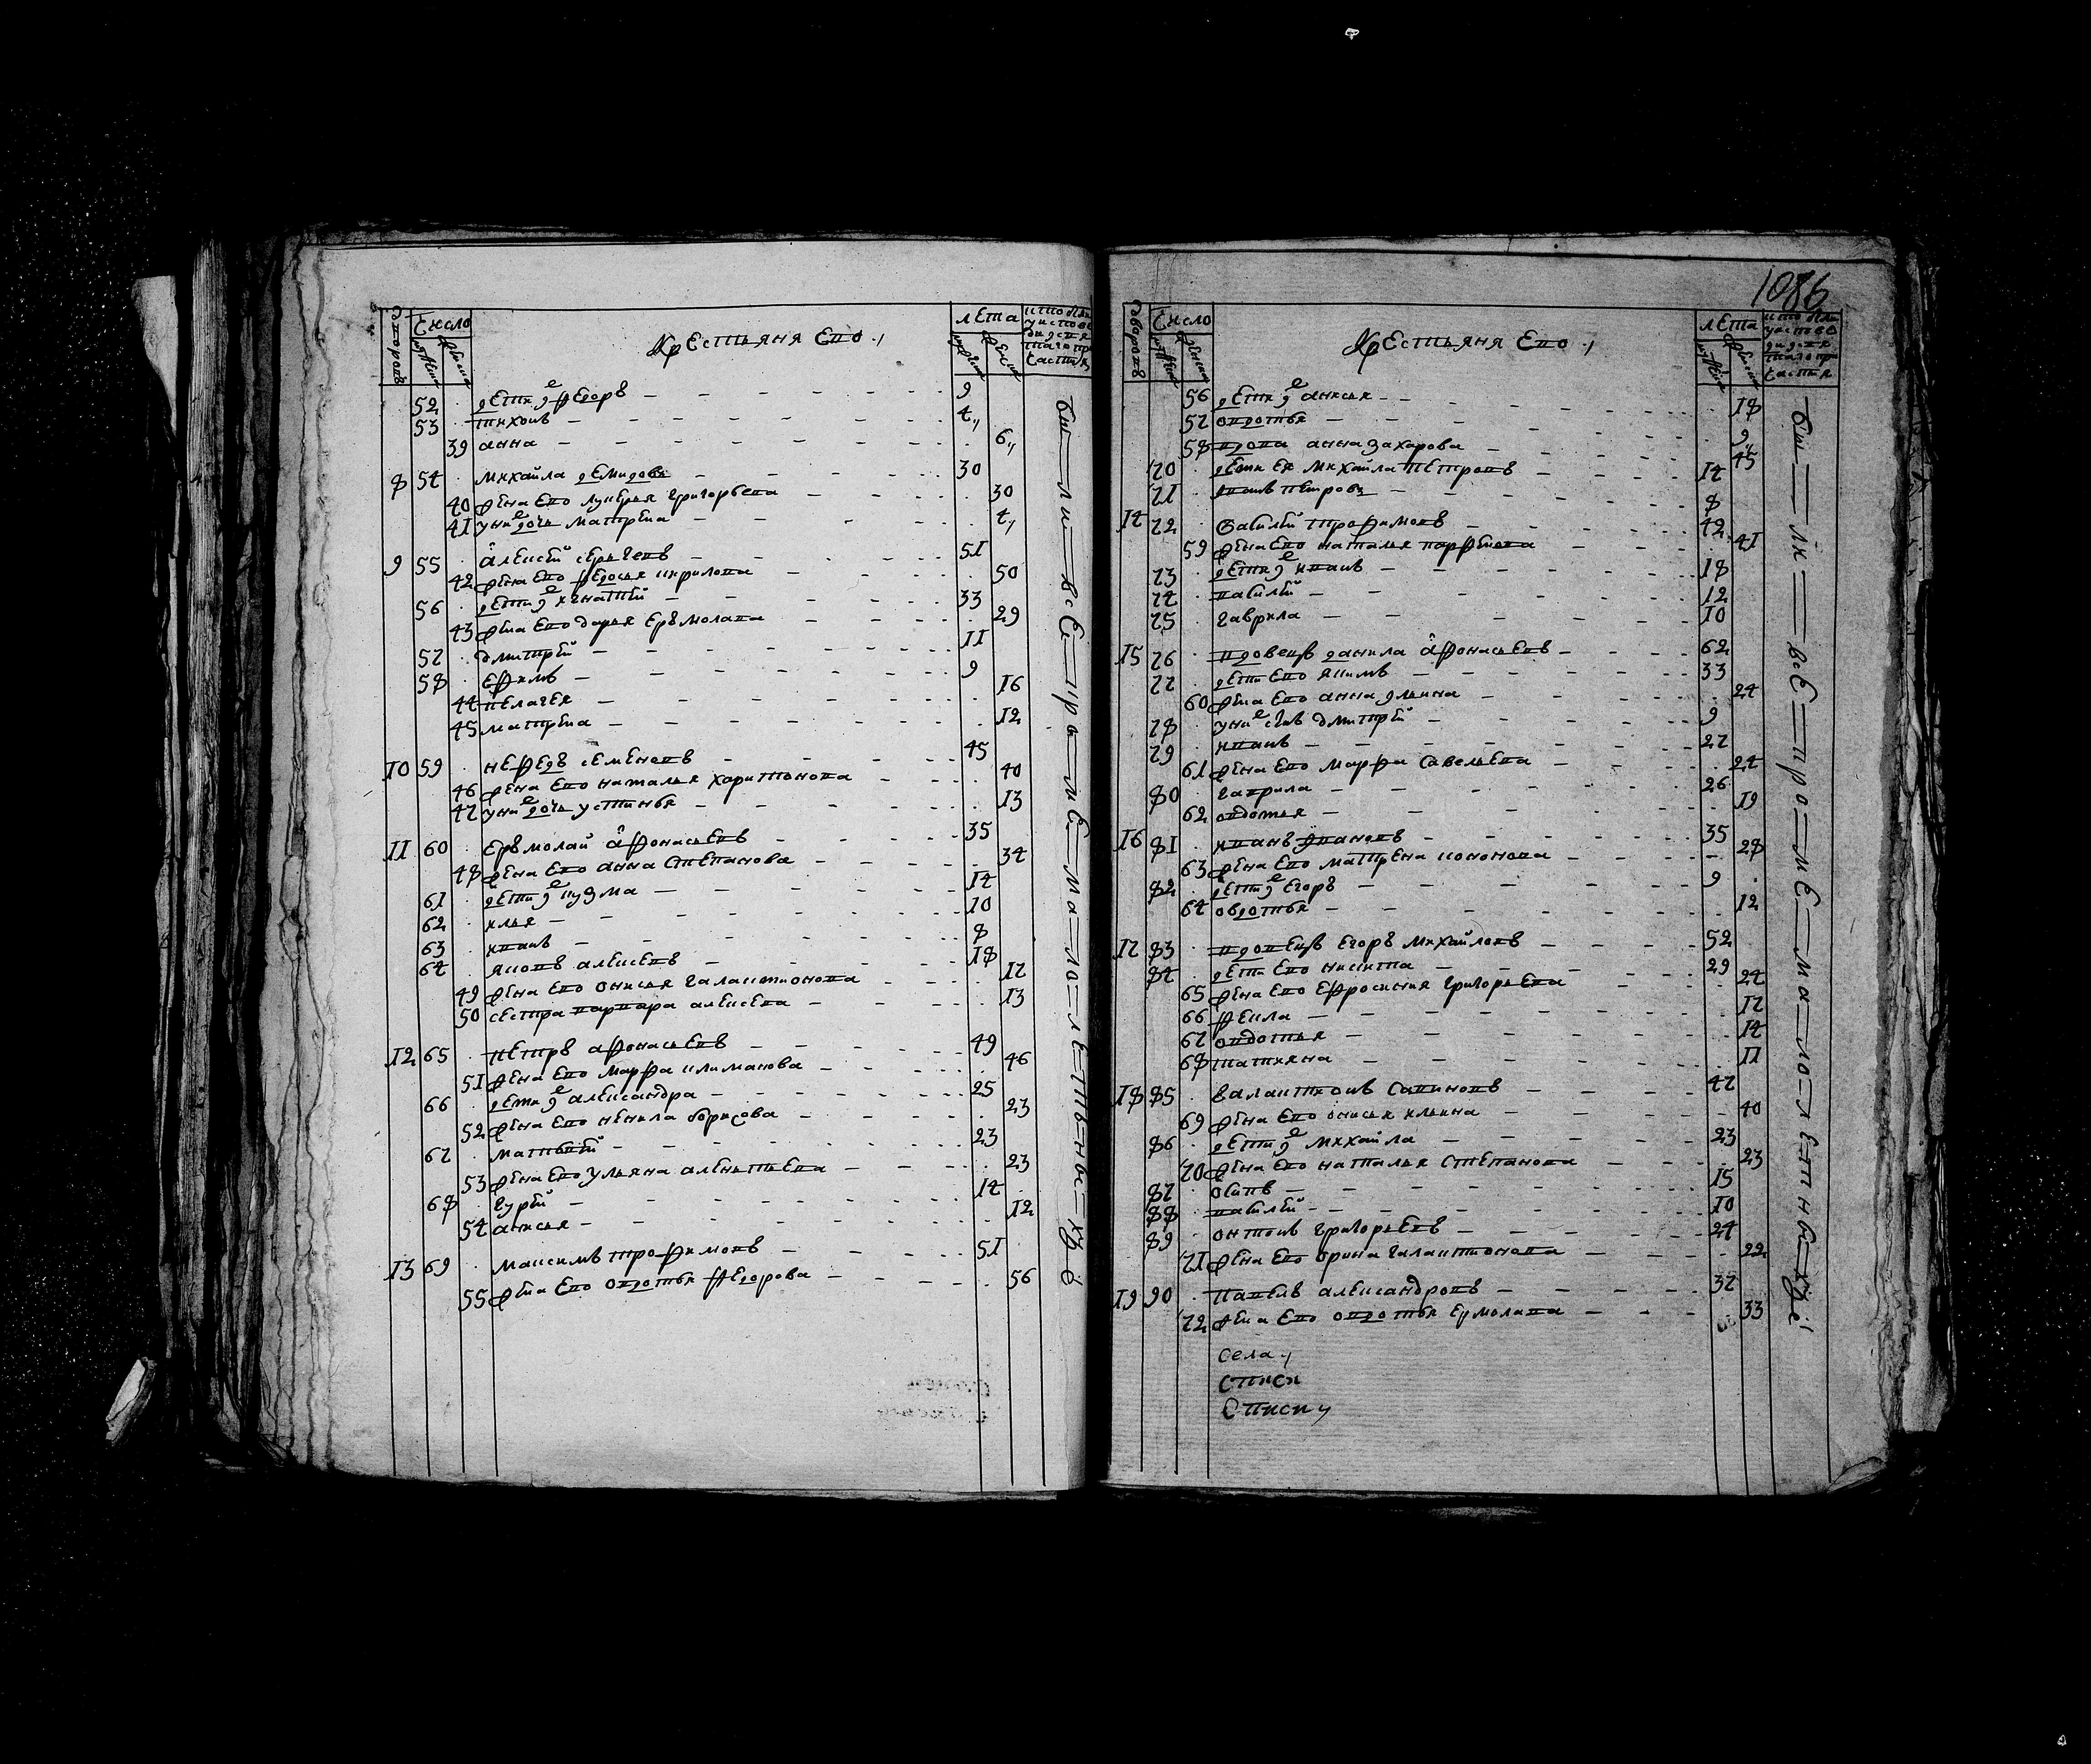 дворовъ
Число
мужеска
женска
Крестьяня Ево
лета
мужеска
женска
52 дети ѣ Федоръ 9
53 тихонъ 4
39 анна 6
8 54 михайла демидовъ 30
40 жена Ево лукерья григорьева 30
41 унихъ дочь матрена 4
9 55 алексей сергеевъ 51
42 жена Ево федосья кирилова 50
56 дети ѣ игнатей 33
43 жена Ево дарья Еръмолава 29
57 дмитрей 11
58 Ефимъ 9
44 пелагея 16
45 матрена 12
10 59 нефедъ семеновъ 45
46 жена Ево наталья харитонова 40
47 унихъ дочь устинья 13
11 60 Еръмолай афонасьевъ 35
48 жена Ево анна степанова 34
61 дети ѣ кузма 14
62 илья 10
63 иванъ 8
64 яковъ алексевъ 18
49 жена Ево онисья галактионова 17
50 сестра варвара алексева 13
12 65 петръ афонасьевъ 49
51 жена Ево марфа климанова 46
66 дети ѣ александра 25
52 жена Ево ненила борисова 23
67 матвей 23
53 жена Ево ульяна 23
68 гурей 14
54 анисья 12
13 69 максимъ трофимовъ 51
55 жена Ево овдотья федорова 56
бы—ли—все—вре—ме—ма—ло—ле—тны—хъ
1086
дворовъ
Число
мужеска
женска
Крестьяня Ево
лета
мужеска
женска
56 дети ѣ анисья 18
57 овдотья 9
58 вдова анна захарова 45
70 дети Ея михайла петровъ 14
71 иванъ петровъ 8
14 72 василей трофимовъ 42
59 жена Ево наталья парфенова 41
73 дети ѣ иванъ 18
74 василей 12
75 гаврила 10
15 76 вдовецъ данила афонасьевъ 62
77 дети Ево якимъ 33
60 жена Ево анна ильина 24
78 унихъ сынъ дмитрей 9
79 иванъ 27
61 жена Ево марфа савельева 24
80 гаврила 26
62 овдотья 19
16 81 иванъ ивановъ 35
63 жена Ево матрена кононова 28
82 дети ѣ Егоръ 9
64 овдотья 12
17 83 вдовецъ Егоръ михайловъ 52
84 дети Ево никита 29
65 жена Ево Ефросиния григорьева 24
66 фекла 17
67 овдотья 14
68 татияна 11
18 85 валантионъ савиновъ 47
69 жена Ево онисья ильина 40
86 дети ѣ михайла 23
70 жена Ево наталья степанова 23
87 осипъ 15
88 василей 10
89 онтонъ григорьевъ 24
71 жена Ево орина галактионова 22
19 90 павелъ александровъ 37
72 жена Ево овдотья Ермолава 33
села
списк
Списку